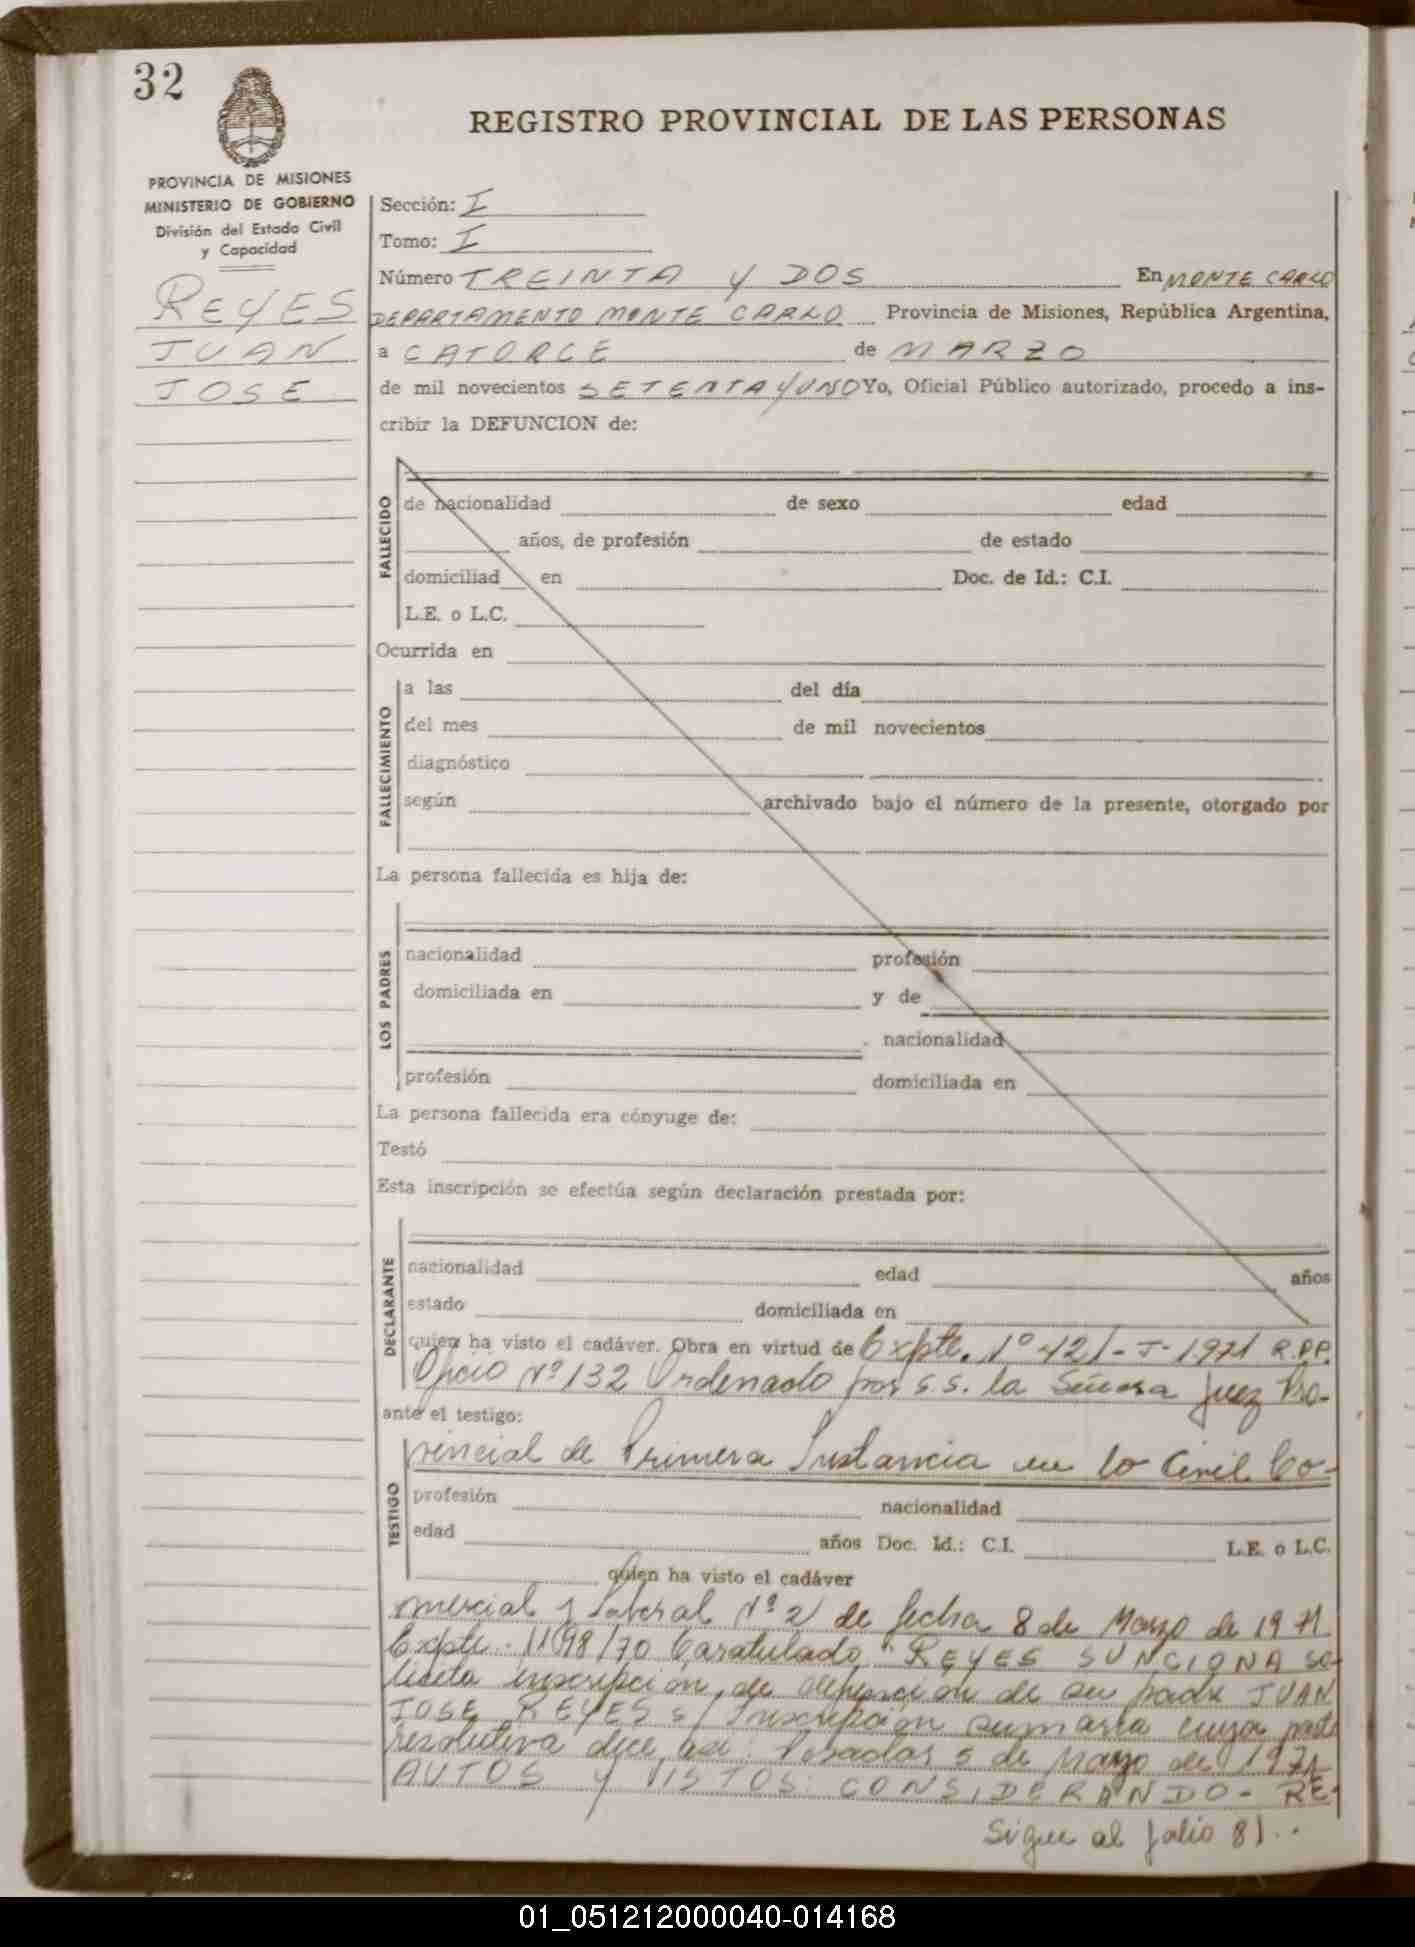 32
REGISTRO PROVINCIAL DE LAS PERSONAS
PROVINCIA DE MISIONES
MINISTERIO DE GOBIERNO
División del Estado Civil
y Capacidad
REYES
JUAN
JOSE
Sección: I
Tomo: I
Número TREINTA y DOS En MONTE CARLO
DEPARTAMENTO MONTE CARLO Provincia de Misiones, República Argentina,
a CATORCE de MARZO
de mil novecientos SETENTA y UNO Yo, Oficial Público autorizado, procedo a ins-
cribir la DEFUNCION de:
FALLECIDO
de nacionalidad de sexo edad
años, de profesión de estado
domiciliad en Doc. de Id.: C.I.
L.E. o L.C.
Ocurrida en
FALLECIMIENTO
a las del día
del mes de mil novecientos
diagnóstico
según archivado bajo el número de la presente, otorgado por
La persona fallecida es hija de:
LOS PADRES
nacionalidad profesión
domiciliada en y de
nacionalidad
profesión domiciliada en
La persona fallecida era cónyuge de:
Testó
Esta inscripción se efectúa según declaración prestada por:
DECLARANTE
nacionalidad edad años
estado domiciliada en
quien ha visto el cadáver. Obra en virtud de Expte. Nº 421-J-1971 R.P.P.
Oficio Nº 132 Ordenado por S.S. la Señora Juez Pro-
ante el testigo:
vincial de Primera Instancia en lo Civil Co-
TESTIGO
profesión nacionalidad
edad años Doc. Id.: C.I. L.E. o L.C.
quien ha visto el cadáver
mercial y Laboral Nº 2 de fecha 8 de Marzo de 1971
Expte. 1198/70 Caratulado "REYES SUNCIONA so-
licita inscripción de defunción de su padre JUAN
JOSE REYES s/ Inscripción sumaria cuya parte
resolutiva dice así: Posadas 5 de Mayo de 1971
AUTOS Y VISTOS: CONSIDERANDO - RE-
Sigue al folio 81..
01_051212000040-014168